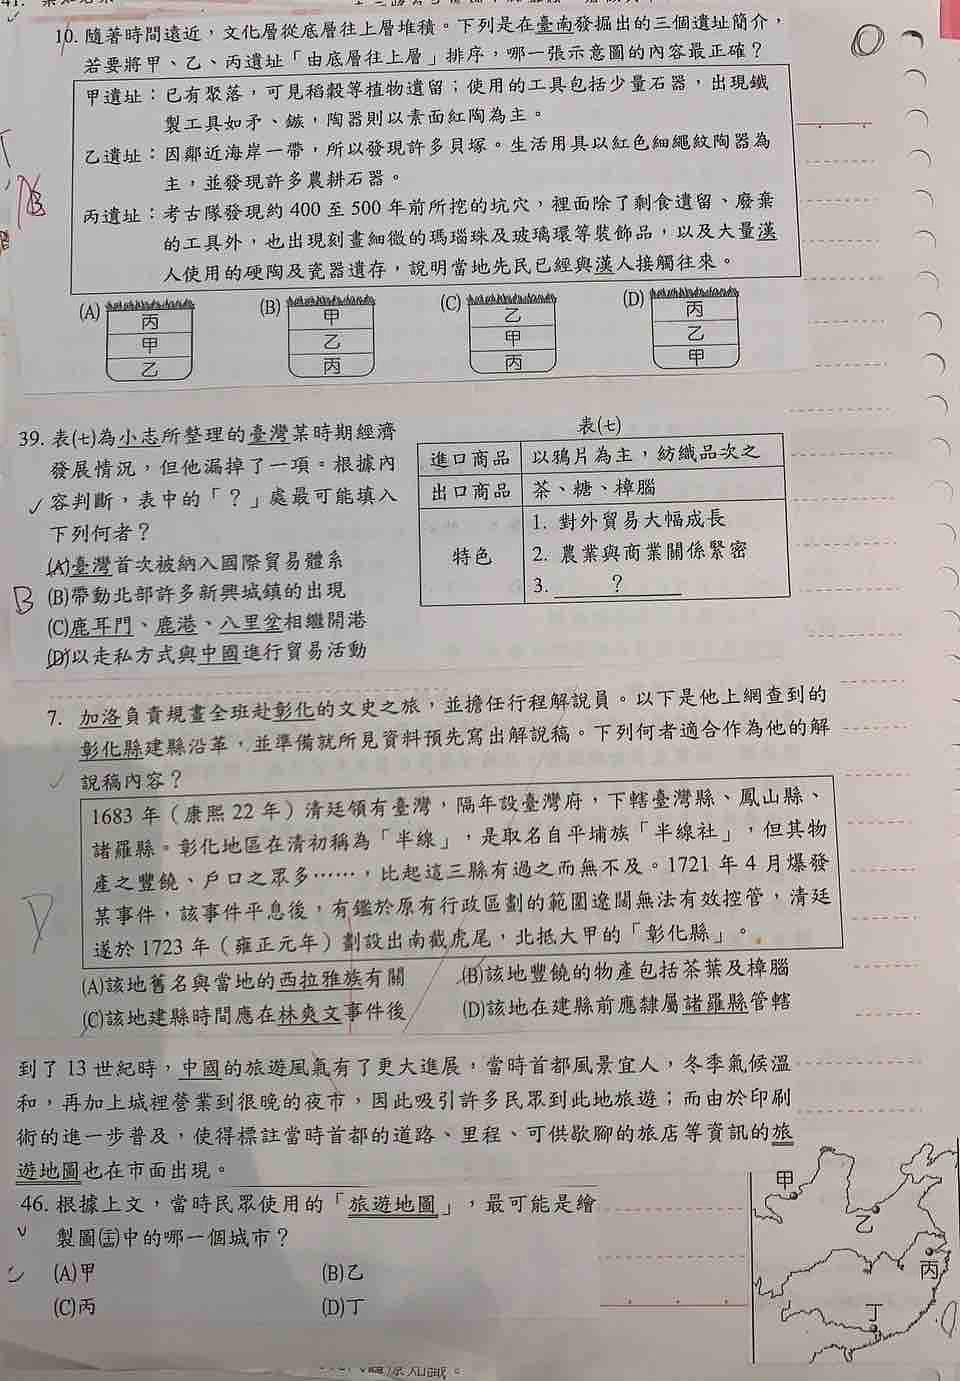 10. 隨著時間遠近，文化層從底層往上層堆積。下列是在臺南發掘出的三個遺址簡介，
若要將甲、乙、丙遺址「由底層往上層」排序，哪一張示意圖的內容最正確？
甲遺址：已有聚落，可見稻穀等植物遺留；使用的工具包括少量石器，出現鐵
製工具如矛、鏃，陶器則以素面紅陶為主。
乙遺址：因鄰近海岸一帶，所以發現許多貝塚。生活用具以紅色細繩紋陶器為
主，並發現許多農耕石器。
丙遺址：考古隊發現約 400 至 500 年前所挖的坑穴，裡面除了剩食遺留、廢棄
的工具外，也出現刻畫細微的瑪瑙珠及玻璃環等裝飾品，以及大量漢
人使用的硬陶及瓷器遺存，說明當地先民已經與漢人接觸往來。
B
(A) 丙 甲 乙
(B) 甲 乙 丙
(C) 乙 甲 丙
(D) 丙 乙 甲
39. 表(七)為小志所整理的臺灣某時期經濟
發展情況，但他漏掉了一項。根據內
容判斷，表中的「？」處最可能填入
下列何者？
(A)臺灣首次被納入國際貿易體系
B
(B)帶動北部許多新興城鎮的出現
(C)鹿耳門、鹿港、八里坌相繼開港
(D)以走私方式與中國進行貿易活動
表(七)
進口商品 以鴉片為主，紡織品次之
出口商品 茶、糖、樟腦
特色
1. 對外貿易大幅成長
2. 農業與商業關係緊密
3. ？
7. 加洛負責規畫全班赴彰化的文史之旅，並擔任行程解說員。以下是他上網查到的
彰化縣建縣沿革，並準備就所見資料預先寫出解說稿。下列何者適合作為他的解
說稿內容？
1683 年（康熙 22 年）清廷領有臺灣，隔年設臺灣府，下轄臺灣縣、鳳山縣、
諸羅縣。彰化地區在清初稱為「半線」，是取名自平埔族「半線社」，但其物
產之豐饒、戶口之眾多……，比起這三縣有過之而無不及。1721 年 4 月爆發
某事件，該事件平息後，有鑑於原有行政區劃的範圍遼闊無法有效控管，清廷
遂於 1723 年（雍正元年）劃設出南截虎尾，北抵大甲的「彰化縣」。
D
(A)該地舊名與當地的西拉雅族有關
(B)該地豐饒的物產包括茶葉及樟腦
(C)該地建縣時間應在林爽文事件後
(D)該地在建縣前應隸屬諸羅縣管轄
到了 13 世紀時，中國的旅遊風氣有了更大進展，當時首都風景宜人，冬季氣候溫
和，再加上城裡營業到很晚的夜市，因此吸引許多民眾到此地旅遊；而由於印刷
術的進一步普及，使得標註當時首都的道路、里程、可供歇腳的旅店等資訊的旅
遊地圖也在市面出現。
46. 根據上文，當時民眾使用的「旅遊地圖」，最可能是繪
製圖(五)中的哪一個城市？
(A)甲
(B)乙
(C)丙
(D)丁
甲
乙
丙
丁